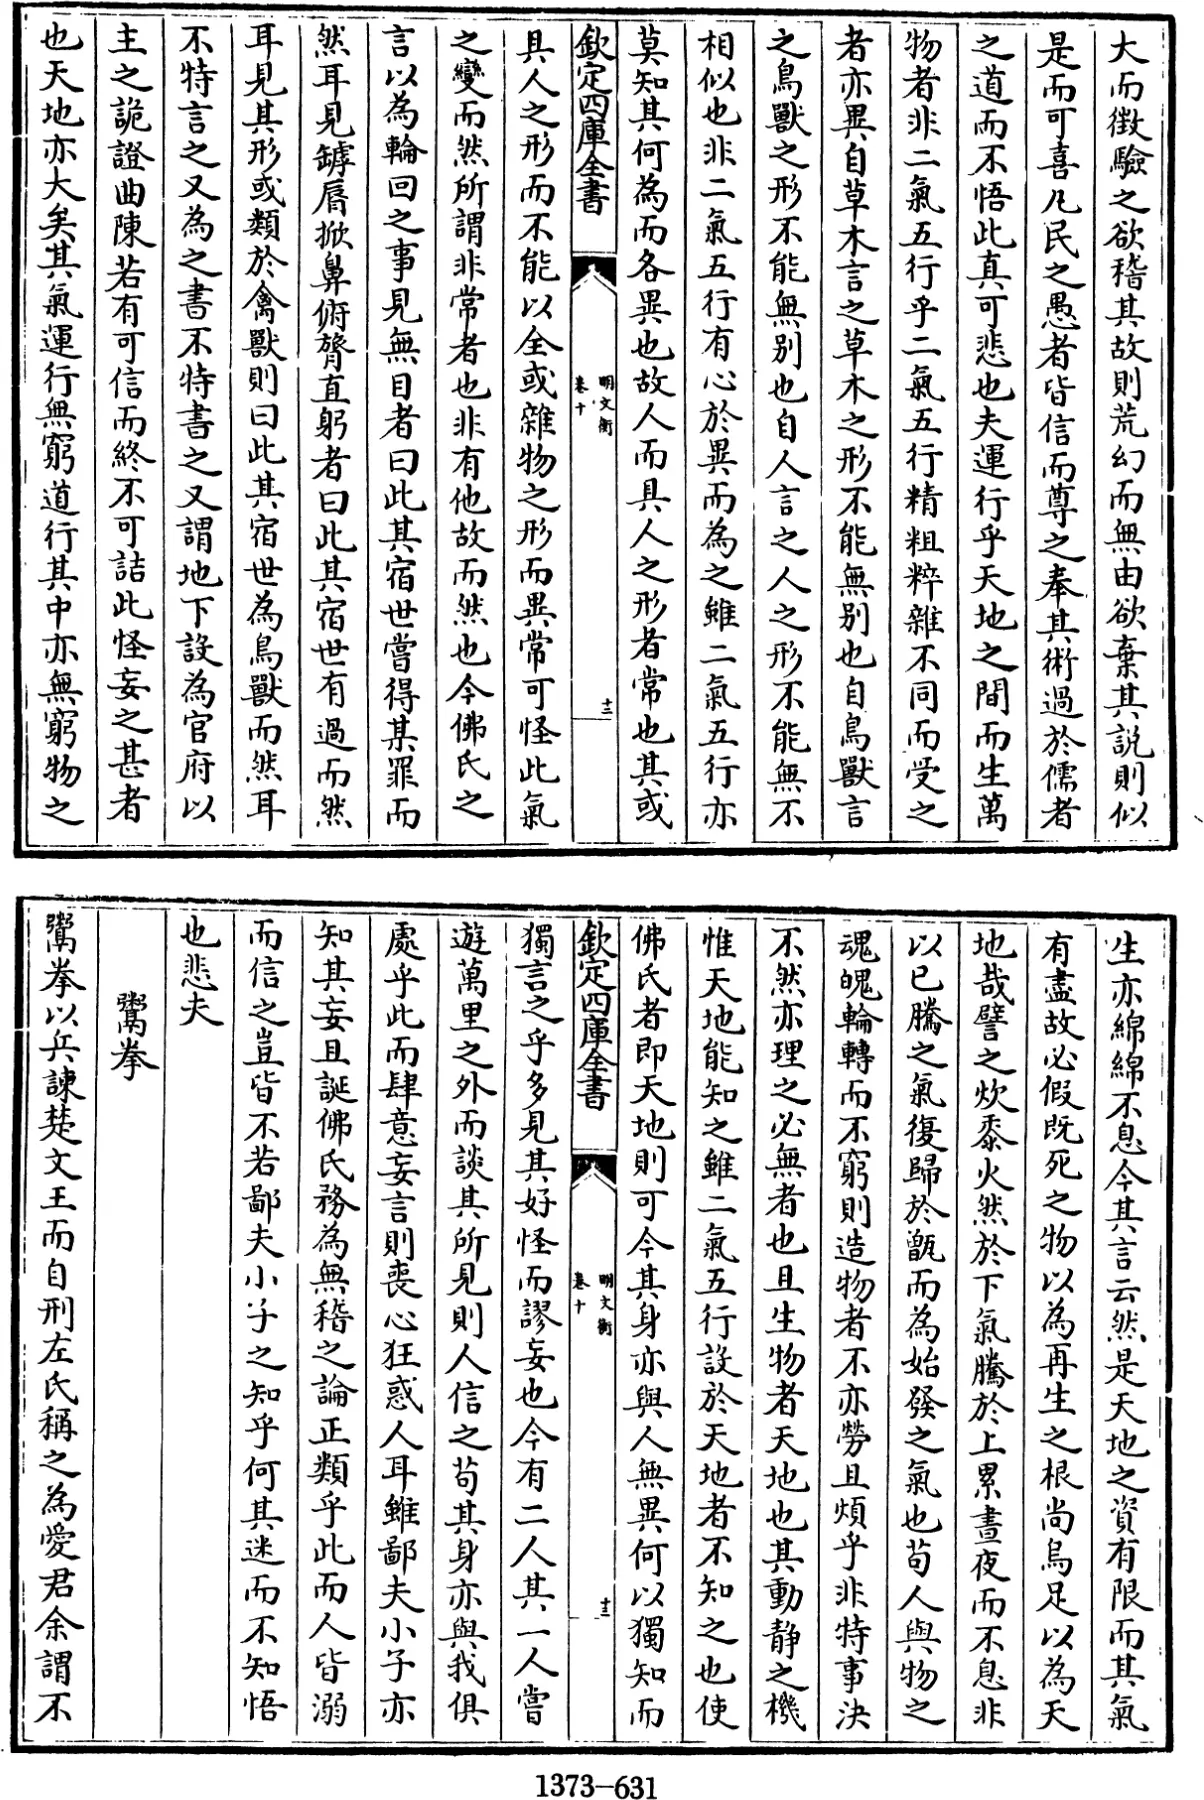 大而徴驗之欲稽其故則荒幻而無由欲棄其説則似
是而可喜凡民之愚者皆信而尊之奉其術過於儒者
之道而不悟此真可悲也夫運行乎天地之間而生萬
物者非二氣五行乎二氣五行精粗粹雜不同而受之
者亦異自草木言之草木之形不能無别也自鳥獸言
之鳥獸之形不能無别也自人言之人之形不能無不
相似也非二氣五行有心於異而為之雖二氣五行亦
莫知其何為而各異也故人而具人之形者常也其或
欽定四庫全書
明文衡
卷十
十二
具人之形而不能以全或雜物之形而異常可怪此氣
之變而然所謂非常者也非有他故而然也今佛氏之
言以為輪回之事見無目者曰此其宿世嘗得某罪而
然耳見罅唇掀鼻俯膂直躬者曰此其宿世有過而然
耳見其形或類於禽獸則曰此其宿世為鳥獸而然耳
不特言之又為之書不特書之又謂地下設為官府以
主之詭證曲陳若有可信而終不可詰此怪妄之甚者
也天地亦大矣其氣運行無窮道行其中亦無窮物之
生亦綿綿不息今其言云然是天地之資有限而其氣
有盡故必假既死之物以為再生之根尚烏足以為天
地哉譬之炊黍火然於下氣騰於上累晝夜而不息非
以已騰之氣復歸於甑而為始發之氣也苟人與物之
魂魄輪轉而不窮則造物者不亦勞且煩乎非特事決
不然亦理之必無者也且生物者天地也其動静之機
惟天地能知之雖二氣五行設於天地者不知之也使
佛氏者即天地則可今其身亦與人無異何以獨知而
欽定四庫全書
明文衡
卷十
十三
獨言之乎多見其好怪而謬妄也今有二人其一人嘗
遊萬里之外而談其所見則人信之苟其身亦與我俱
處乎此而肆意妄言則喪心狂惑人耳雖鄙夫小子亦
知其妄且誕佛氏務為無稽之論正類乎此而人皆溺
而信之豈皆不若鄙夫小子之知乎何其迷而不知悟
也悲夫
鬻拳
鬻拳以兵諫楚文王而自刑左氏稱之為愛君余謂不
1373-631